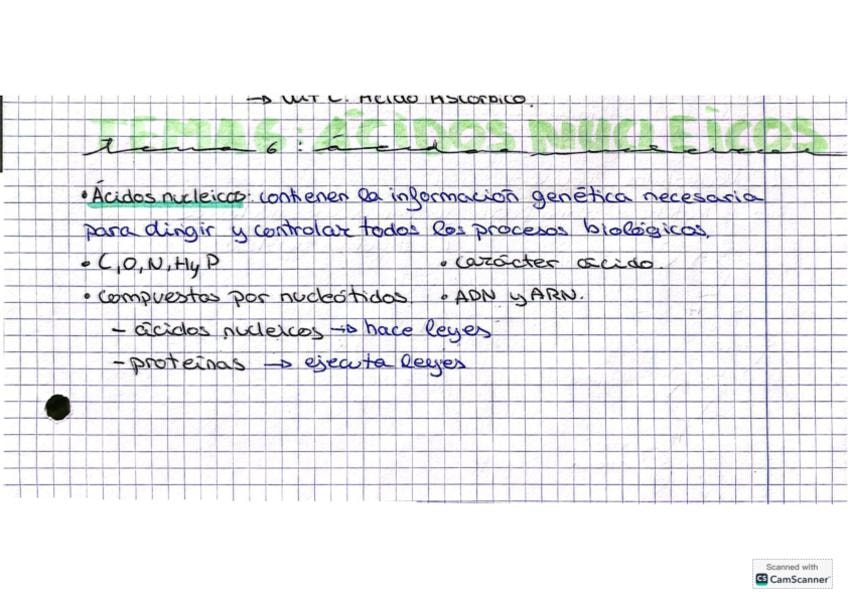 → VIT C: Ácido Ascórbico.
TEMA 6: ÁCIDOS NUCLEICOS
tema 6: ácidos nucleicos
• Ácidos nucleicos: contienen la información genética necesaria
para dirigir y controlar todos los procesos biológicos.
• C, O, N, H y P • carácter ácido.
• compuestos por nucleótidos • ADN y ARN.
- ácidos nucleicos → hace leyes
- proteínas → ejecuta leyes
Scanned with
CS CamScanner